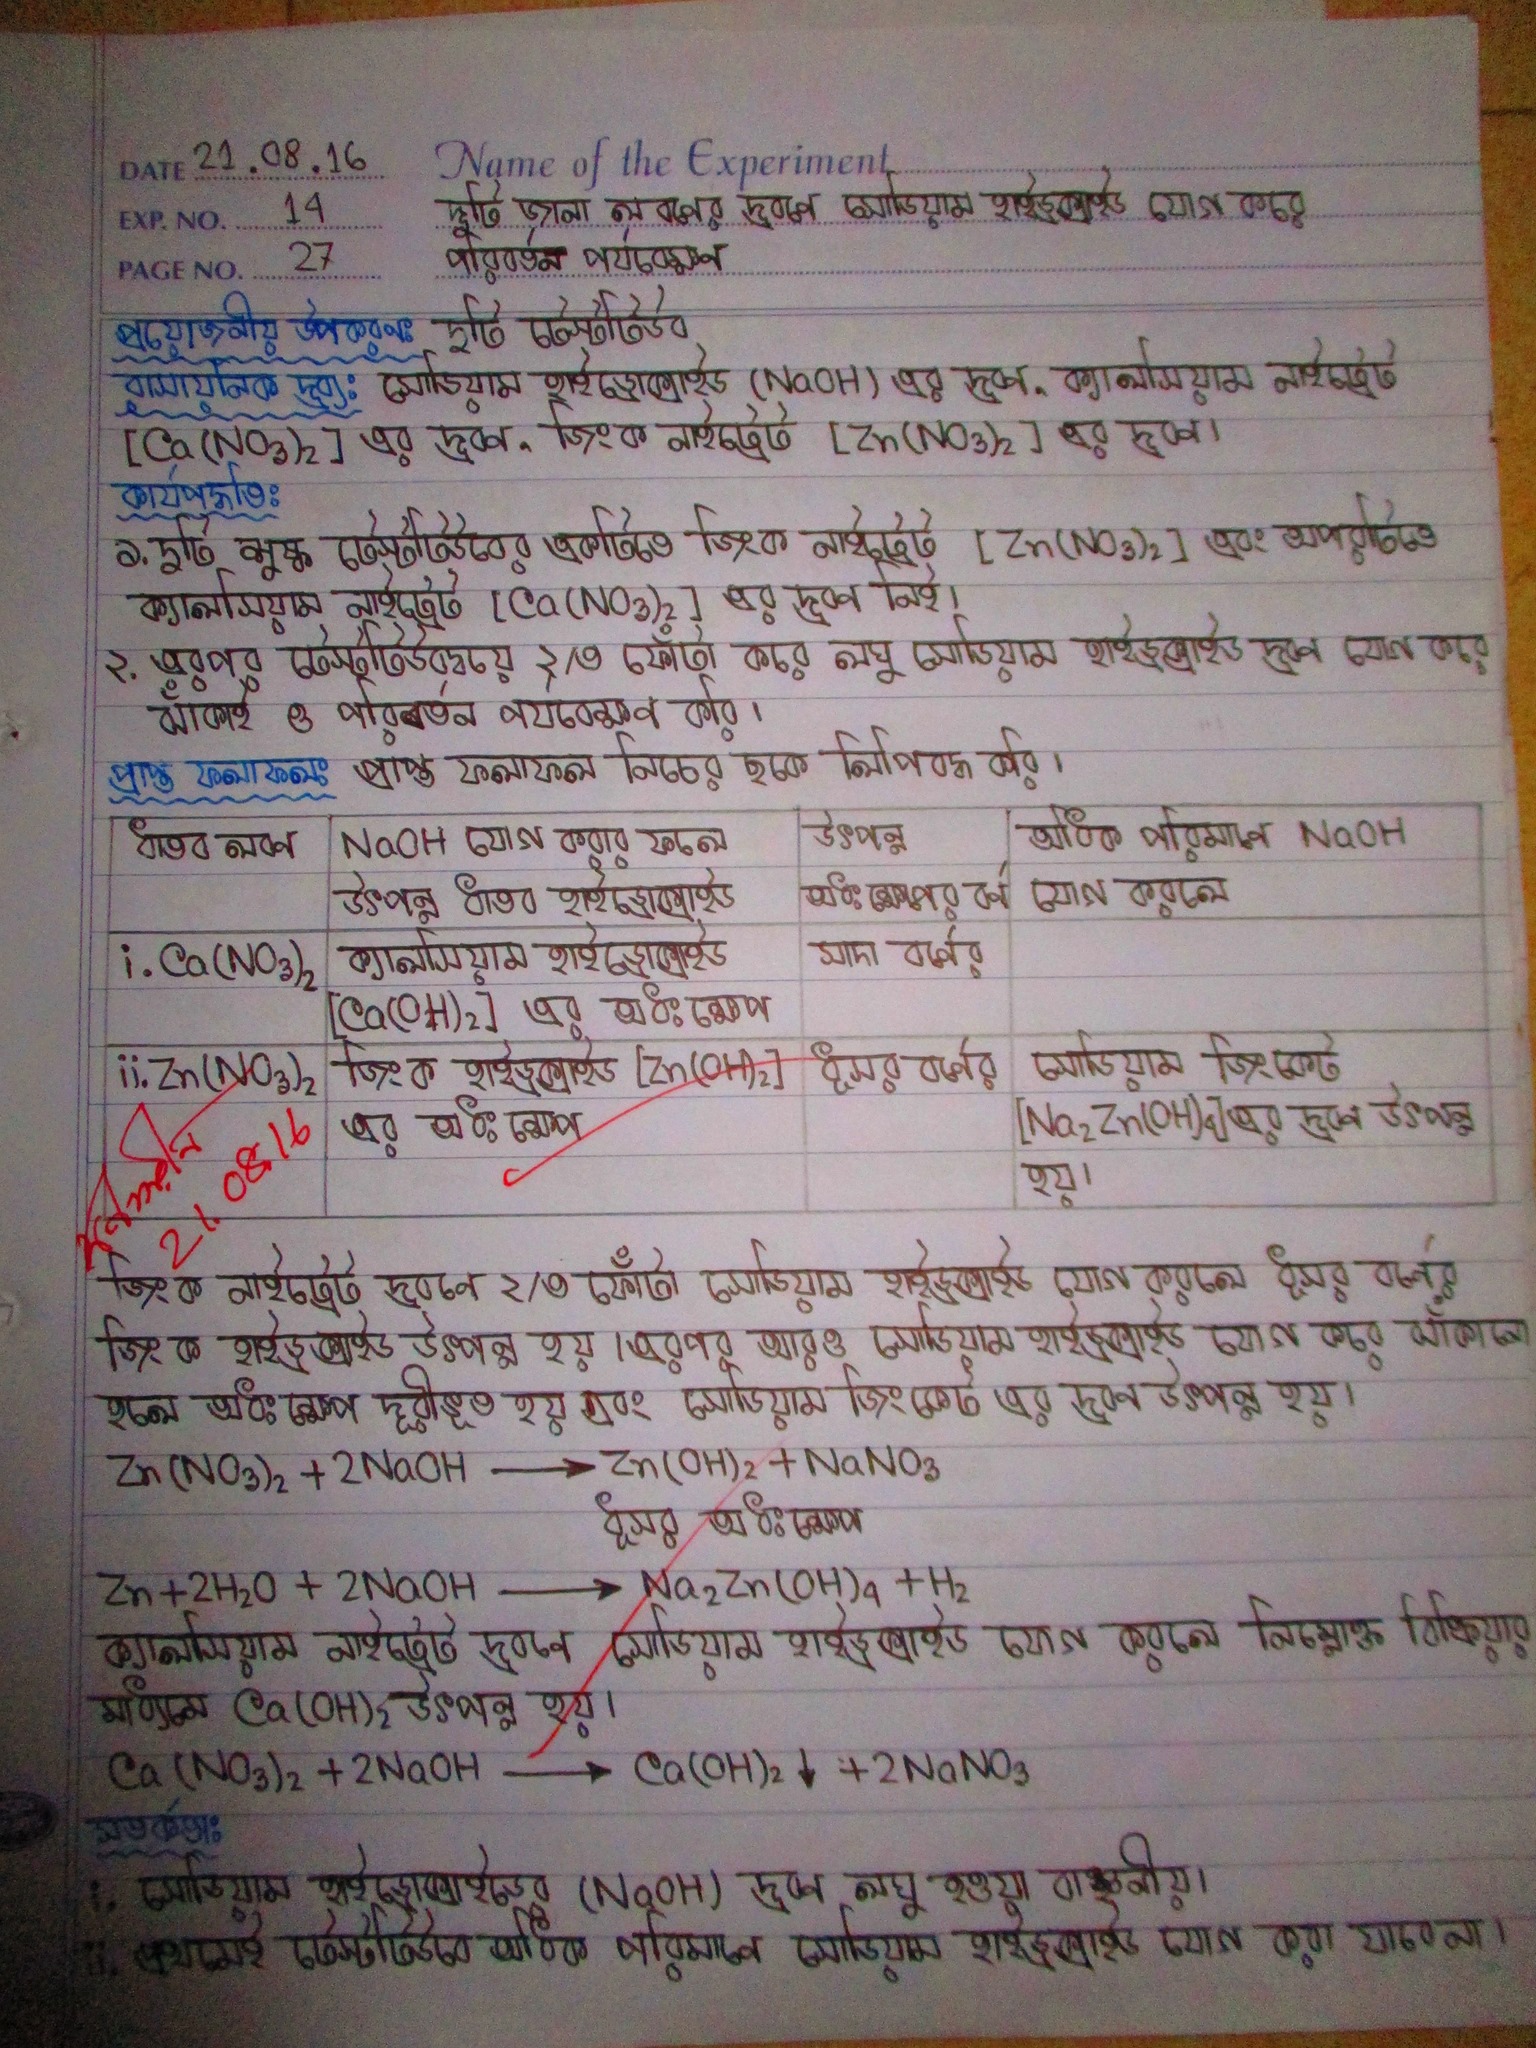 DATE 21.08.16 Name of the Experiment
EXP. NO. 14 দুটি জানা লবণের দ্রবণে সোডিয়াম হাইড্রক্সাইড যোগ করে
PAGE NO. 27 পরিবর্তন পর্যবেক্ষণ
প্রয়োজনীয় উপকরণঃ দুটি টেস্টটিউব
রাসায়নিক দ্রব্যঃ সোডিয়াম হাইড্রোক্সাইড (NaOH) এর দ্রবণ, ক্যালসিয়াম নাইট্রেট
[Ca(NO₃)₂] এর দ্রবণ, জিংক নাইট্রেট [Zn(NO₃)₂] এর দ্রবণ।
কার্যপদ্ধতিঃ
১. দুটি শুষ্ক টেস্টটিউবের একটিতে জিংক নাইট্রেট [Zn(NO₃)₂] এবং অপরটিতে
ক্যালসিয়াম নাইট্রেট [Ca(NO₃)₂] এর দ্রবণ নিই।
২. এরপর টেস্টটিউবদ্বয়ে ২/৩ ফোঁটা করে লঘু সোডিয়াম হাইড্রক্সাইড দ্রবণ যোগ করে
ঝাঁকাই ও পরিবর্তন পর্যবেক্ষণ করি।
প্রাপ্ত ফলাফলঃ প্রাপ্ত ফলাফল নিচের ছকে লিপিবদ্ধ করি।
ধাতব লবণ NaOH যোগ করার ফলে উৎপন্ন অধিক পরিমানে NaOH
উৎপন্ন ধাতব হাইড্রোক্সাইড অধঃক্ষেপের বর্ণ যোগ করলে
i. Ca(NO₃)₂ ক্যালসিয়াম হাইড্রোক্সাইড সাদা বর্ণের
[Ca(OH)₂] এর অধঃক্ষেপ
ii. Zn(NO₃)₂ জিংক হাইড্রক্সাইড [Zn(OH)₂] ধূসর বর্ণের সোডিয়াম জিংকেট
এর অধঃক্ষেপ [Na₂Zn(OH)₄] এর দ্রবণ উৎপন্ন
হয়।
21.08.16
জিংক নাইট্রেট দ্রবণে ২/৩ ফোঁটা সোডিয়াম হাইড্রক্সাইড যোগ করলে ধূসর বর্ণের
জিংক হাইড্রক্সাইড উৎপন্ন হয়। এরপর আরও সোডিয়াম হাইড্রক্সাইড যোগ করে ঝাঁকানো
হলে অধঃক্ষেপ দূরীভূত হয় এবং সোডিয়াম জিংকেট এর দ্রবণ উৎপন্ন হয়।
Zn(NO₃)₂ + 2NaOH ⟶ Zn(OH)₂ + NaNO₃
ধূসর অধঃক্ষেপ
Zn + 2H₂O + 2NaOH ⟶ Na₂Zn(OH)₄ + H₂
ক্যালসিয়াম নাইট্রেট দ্রবণে সোডিয়াম হাইড্রক্সাইড যোগ করলে নিম্নোক্ত বিক্রিয়ার
মাধ্যমে Ca(OH)₂ উৎপন্ন হয়।
Ca(NO₃)₂ + 2NaOH ⟶ Ca(OH)₂↓ + 2NaNO₃
সতর্কতাঃ
i. সোডিয়াম হাইড্রোক্সাইডের (NaOH) দ্রবণ লঘু হওয়া বাঞ্ছনীয়।
ii. প্রথমেই টেস্টটিউবে অধিক পরিমানে সোডিয়াম হাইড্রক্সাইড যোগ করা যাবেনা।